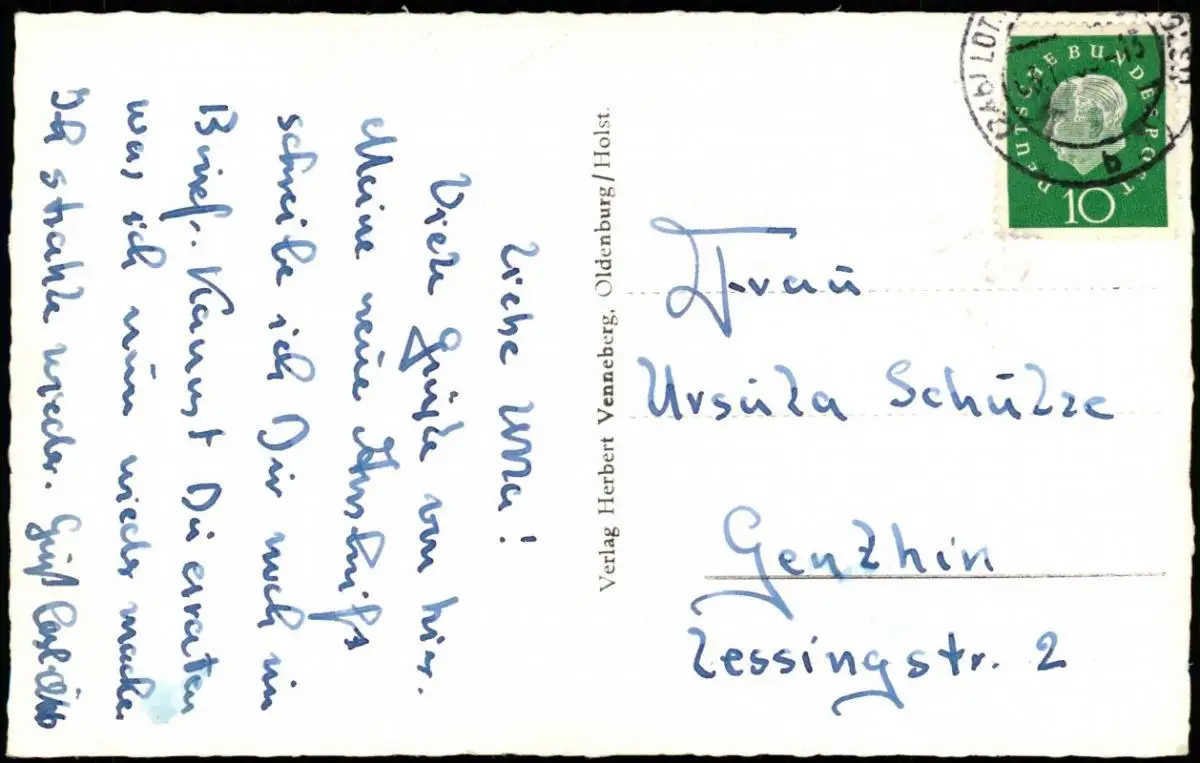 Liebe Ulla!
Viele Grüße von hier.
Meine neue Anschrift
schreibe ich Dir noch im
Brief. Kannst Du erraten
was ich nun wieder mache
Ich strahle wieder. Gruß
Verlag Herbert Venneberg, Oldenburg/Holst.
DEUTSCHE BUNDESPOST
10
b
Frau
Ursula Schulze
Genthin
Lessingstr. 2